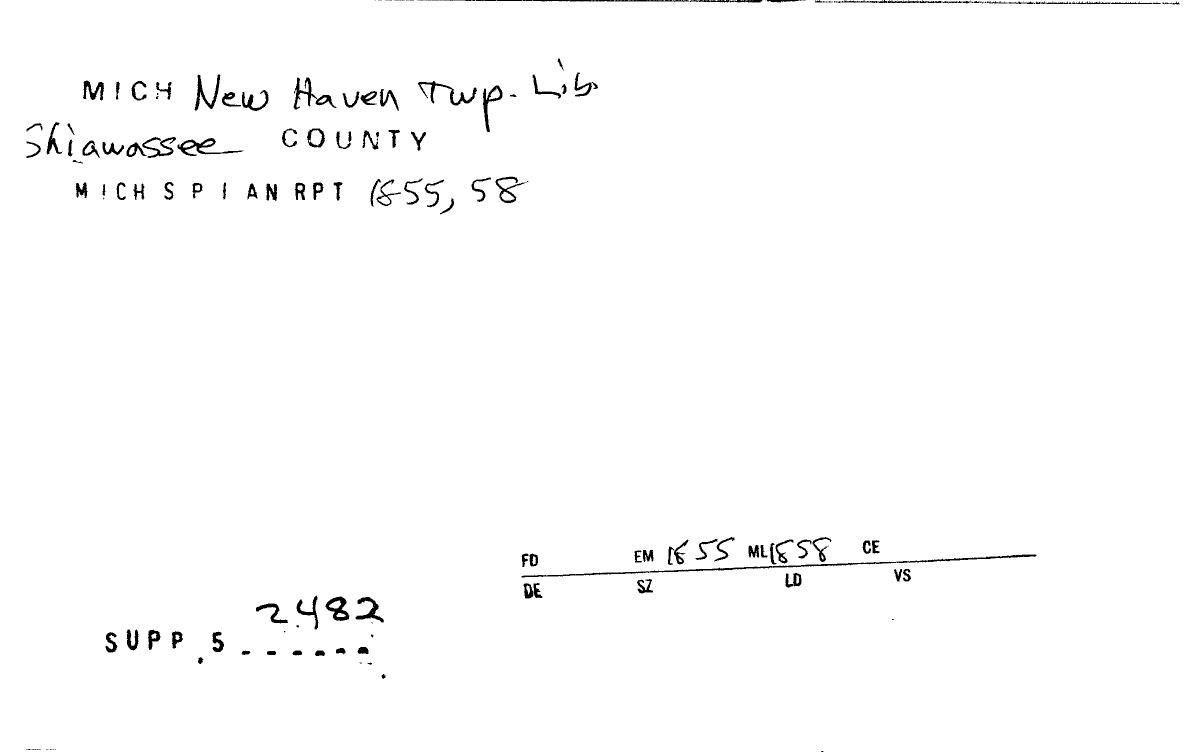 MICH New Haven Twp. Lib
Shiawassee COUNTY
MICH S P I AN RPT 1855, 58
FD EM 1855 ML 1858 CE
DE SZ LD VS
2482
SUPP.5 ------